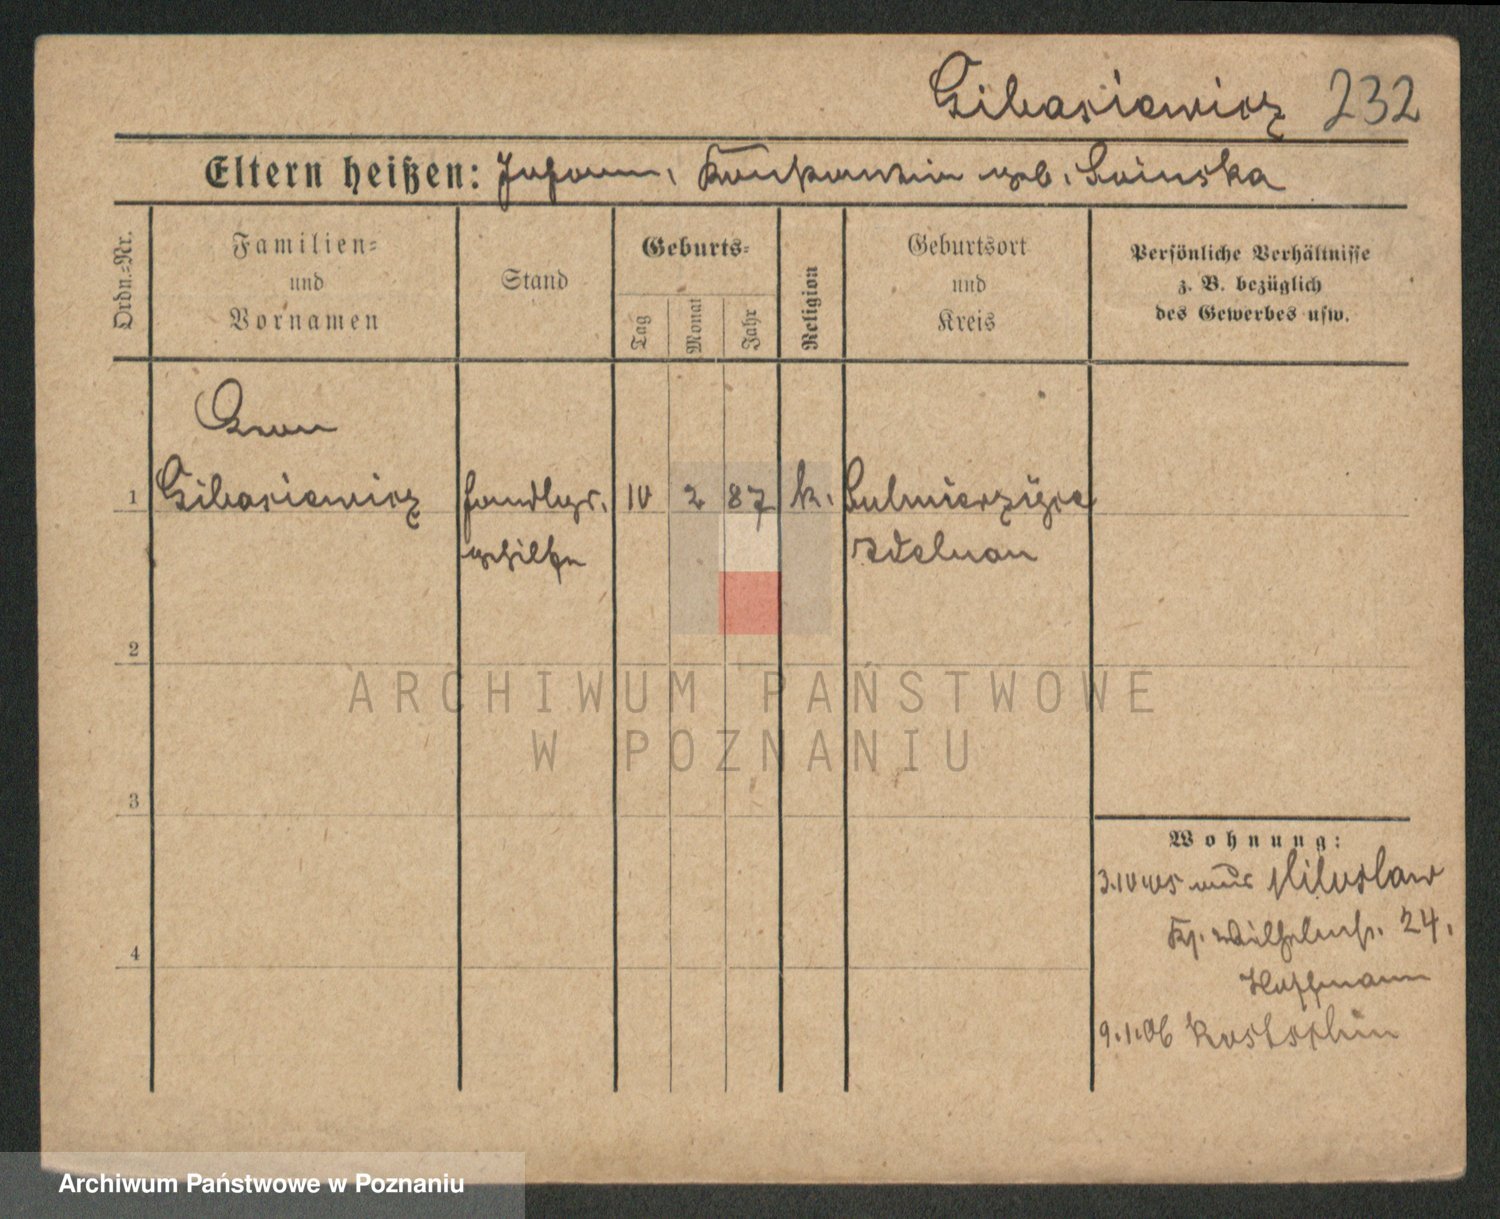 Gibasiewicz 232
Eltern heißen: Johann, Konstantin geb. Soinska
Ordn.=Nr.
Familien=
und
Vornamen
Stand
Geburts=
Tag
Monat
Jahr
Religion
Geburtsort
und
Kreis
Persönliche Verhältnisse
z. B. bezüglich
des Gewerbes usw.
1
Gibasiewicz
Handlgs.
gehilfe
10 2 87 k.
Sulmierzyce
Adelnau
2
ARCHIWUM PAŃSTWOWE
W POZNANIU
3
Wohnung:
3.10.05 aus Miloslaw
Kr. Wilhelmstr. 24.
Hoffmann
4
9.1.06 Kostschin
Archiwum Państwowe w Poznaniu